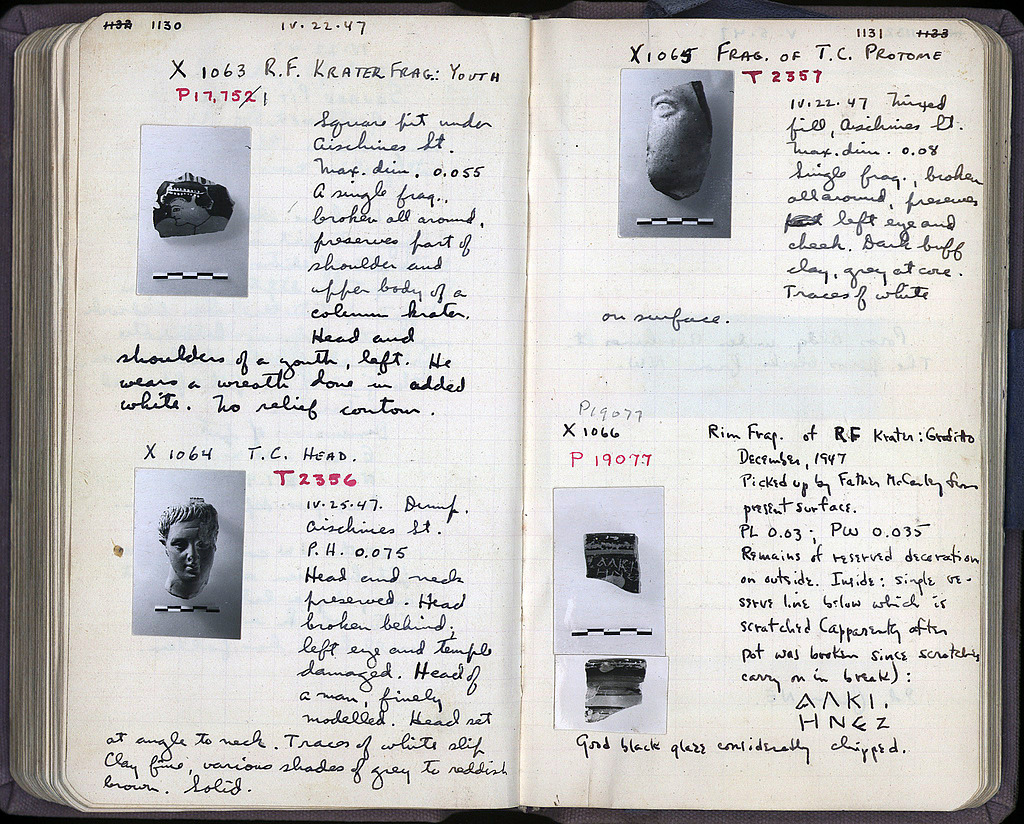 1132 1130 IV.22.47
X 1063 R.F. KRATER FRAG: YOUTH
P17,752 1
Square pit under
Aischines St.
Max. dim. 0.055
A single frag.,
broken all around,
preserves part of
shoulder and
upper body of a
column krater.
Head and
shoulders of a youth, left. He
wears a wreath done in added
white. No relief contour.
X 1064 T.C. HEAD.
T 2356
IV.25.47. Dump.
Aischines St.
P.H. 0.075
Head and neck
preserved. Head
broken behind;
left eye and temple
damaged. Head of
a man, finely
modelled. Head set
at angle to neck. Traces of white slip
Clay fine, various shades of grey to reddish
brown. Solid.
1131 1133
X1065 FRAG. OF T.C. PROTOME
T 2357
IV.22.47 Mixed
fill, Aischines St.
Max. dim. 0.08
Single frag., broken
all around, preserves
left eye and
cheek. Dark buff
clay, grey at core.
Traces of white
on surface.
P19077
X 1066 Rim Frag. of RF Krater: Grafitto
P 19077
December, 1947
Picked up by Father McCauley from
present surface.
PL 0.03; PW 0.035
Remains of reserved decoration
on outside. Inside: single re-
serve line below which is
scratched (apparently after
pot was broken since scratches
carry on in break):
ΑΛΚΙ.
ΗΝΕΖ
Good black glaze considerably chipped.